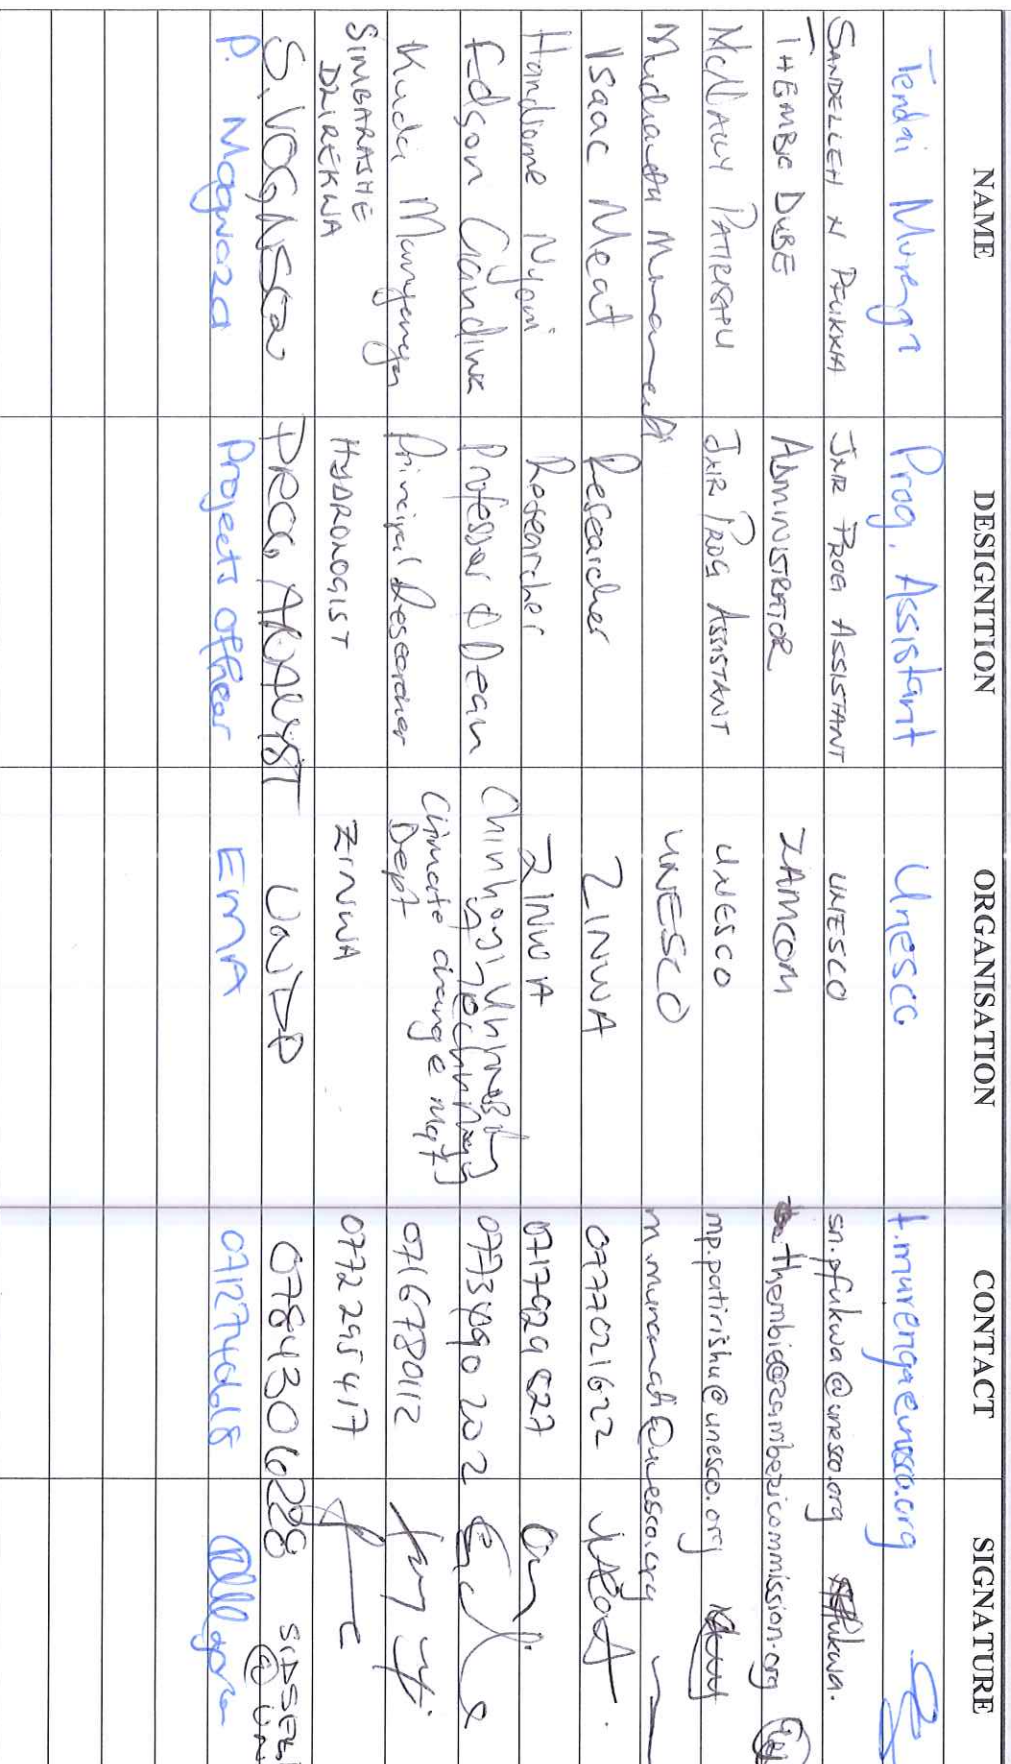 NAME DESIGNITION ORGANISATION CONTACT SIGNATURE
Tendai Murenga Prog. Assistant Unesco t.murenga@unesco.org
SANDELLEH N PFUKWA JNR PROG ASSISTANT UNESCO sn.pfukwa@unesco.org
THEMBIE DUBE ADMINISTRATOR ZAMCOM thembie@zambezicommission.org
McNALLY PATIRISHU JNR PROG ASSISTANT UNESCO mp.patirishu@unesco.org
UNESCO m.munamati@unesco.org
Isaac Meat Researcher ZINWA 0777021622
Handsome Nyoni Researcher ZINWA 0717929527
Edson Gandiwa Professor & Dean Chinhoyi University
Technology 0773490202
Kudzi Munyanya Principal Researcher Climate change mgt
Dept 0716780112
SIMBARASHE
DZIREKWA HYDROLOGIST ZINWA 0772295417
PROG ANALYST UNDP 0784306228
P. Magwaza Projects Officer EMA 0712746618